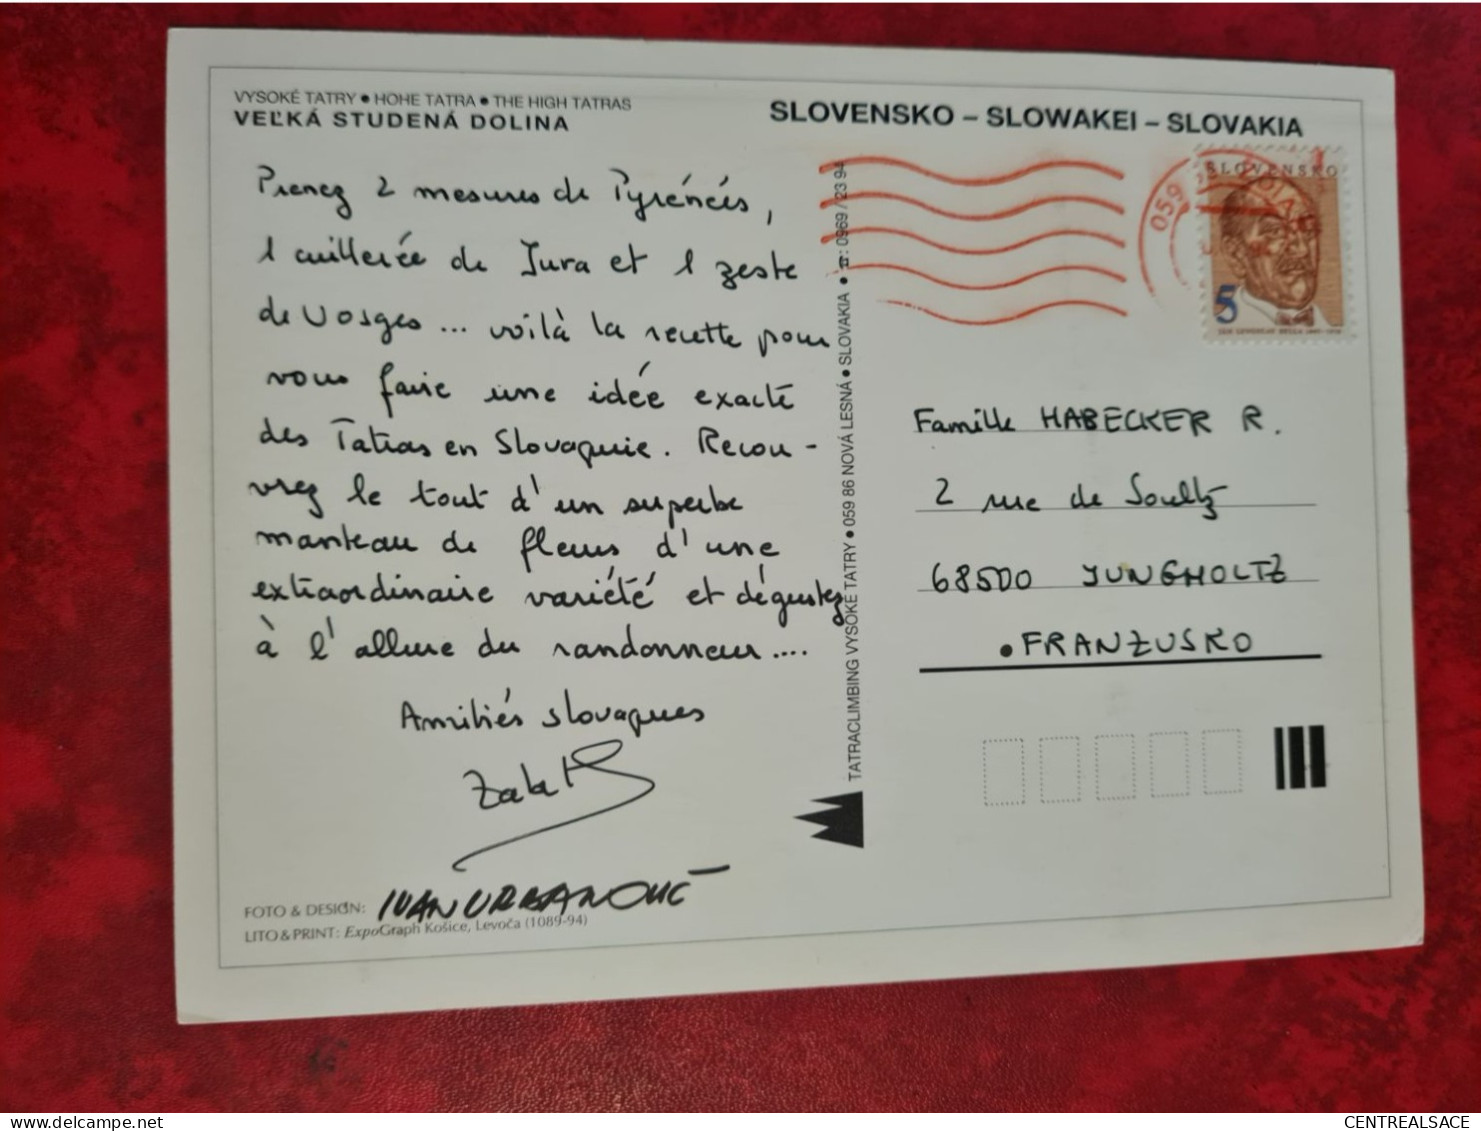 VYSOKÉ TATRY • HOHE TATRA • THE HIGH TATRAS
VEĽKÁ STUDENÁ DOLINA
SLOVENSKO – SLOWAKEI – SLOVAKIA
Prenez 2 mesures de Pyrénées,
1 cuillerée de Jura et 1 zeste
de Vosges ... voilà la recette pour
vous faire une idée exacte
des Tatras en Slovaquie. Recou-
vrez le tout d'un superbe
manteau de fleurs d'une
extraordinaire variété et dégustez
à l'allure du randonneur....
Amitiés slovaques
FOTO & DESIGN: IVAN URBANOVIČ
LITO & PRINT: ExpoGraph Košice, Levoča (1089-94)
TATRACLIMBING VYSOKÉ TATRY • 059 86 NOVÁ LESNÁ • SLOVAKIA • ☎: 0969 / 23 94
059
SLOVENSKO
5
Famille HABECKER R.
2 rue de Soultz
68500 JUNGHOLTZ
• FRANZUSKO
delcampe.net
CENTREALSACE